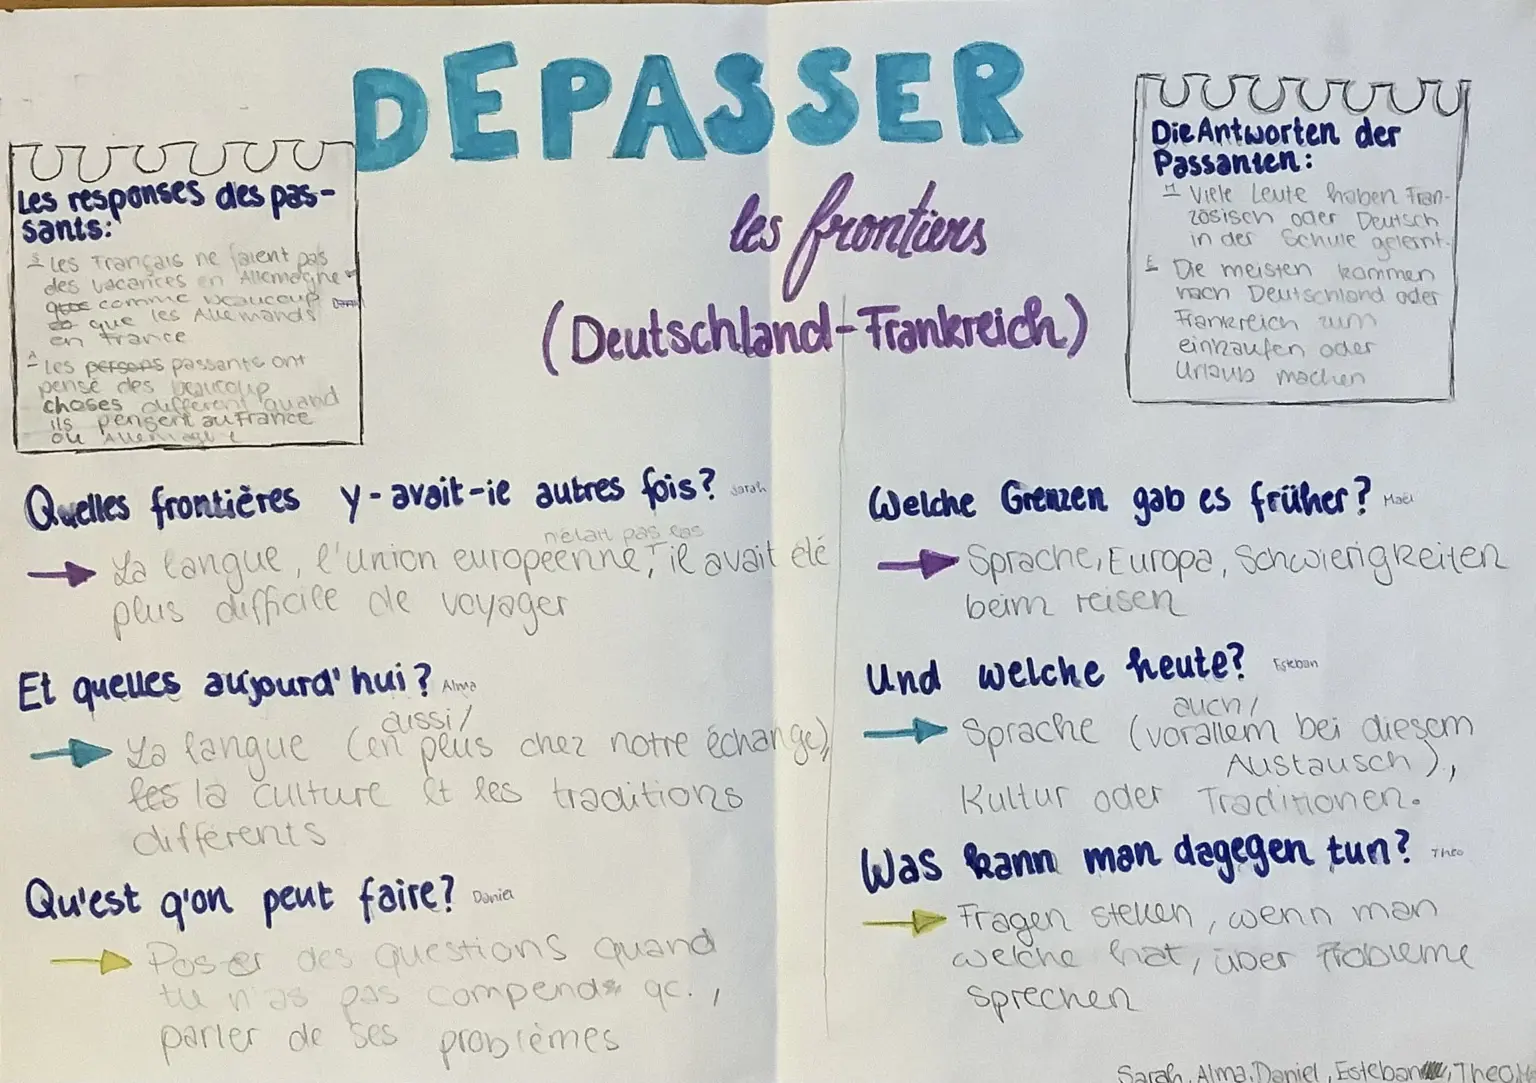 DEPASSER
les frontiers
(Deutschland-Frankreich)
Les responses des pas-
sants:
S
- Les Français ne faient pas
des vacances en Allemagne
comme beaucoup
que les Allemands
en France
A
- les persons passants ont
pensé des beaucoup
choses différent quand
ils pensent au France
ou Allemagne
Die Antworten der
Passanten:
M
- Viele Leute haben Fran-
zösisch oder Deutsch
in der Schule gelernt.
E
- Die meisten kommen
nach Deutschland oder
Frankreich zum
einkaufen oder
Urlaub machen
Quelles frontières y-avait-ie autres fois? Sarah
n'était pas
→ La langue, l'union européenne, il avait été
plus difficile de voyager
Et quelles aujourd'hui? Alma
aussi/
→ La langue (en plus chez notre échange),
les la culture et les traditions
différents
Qu'est q'on peut faire? Daniel
→ Poser des questions quand
tu n'as pas compends qc.,
parler de ses problèmes
Welche Grenzen gab es früher? Maël
→ Sprache, Europa, Schwierigkeiten
beim reisen
Und welche heute? Esteban
auch/
→ Sprache (vorallem bei diesem
Austausch),
Kultur oder Traditionen.
Was kann man dagegen tun? Theo
→ Fragen stellen, wenn man
welche hat, über Probleme
sprechen
Sarah, Alma, Daniel, Esteban, Theo,